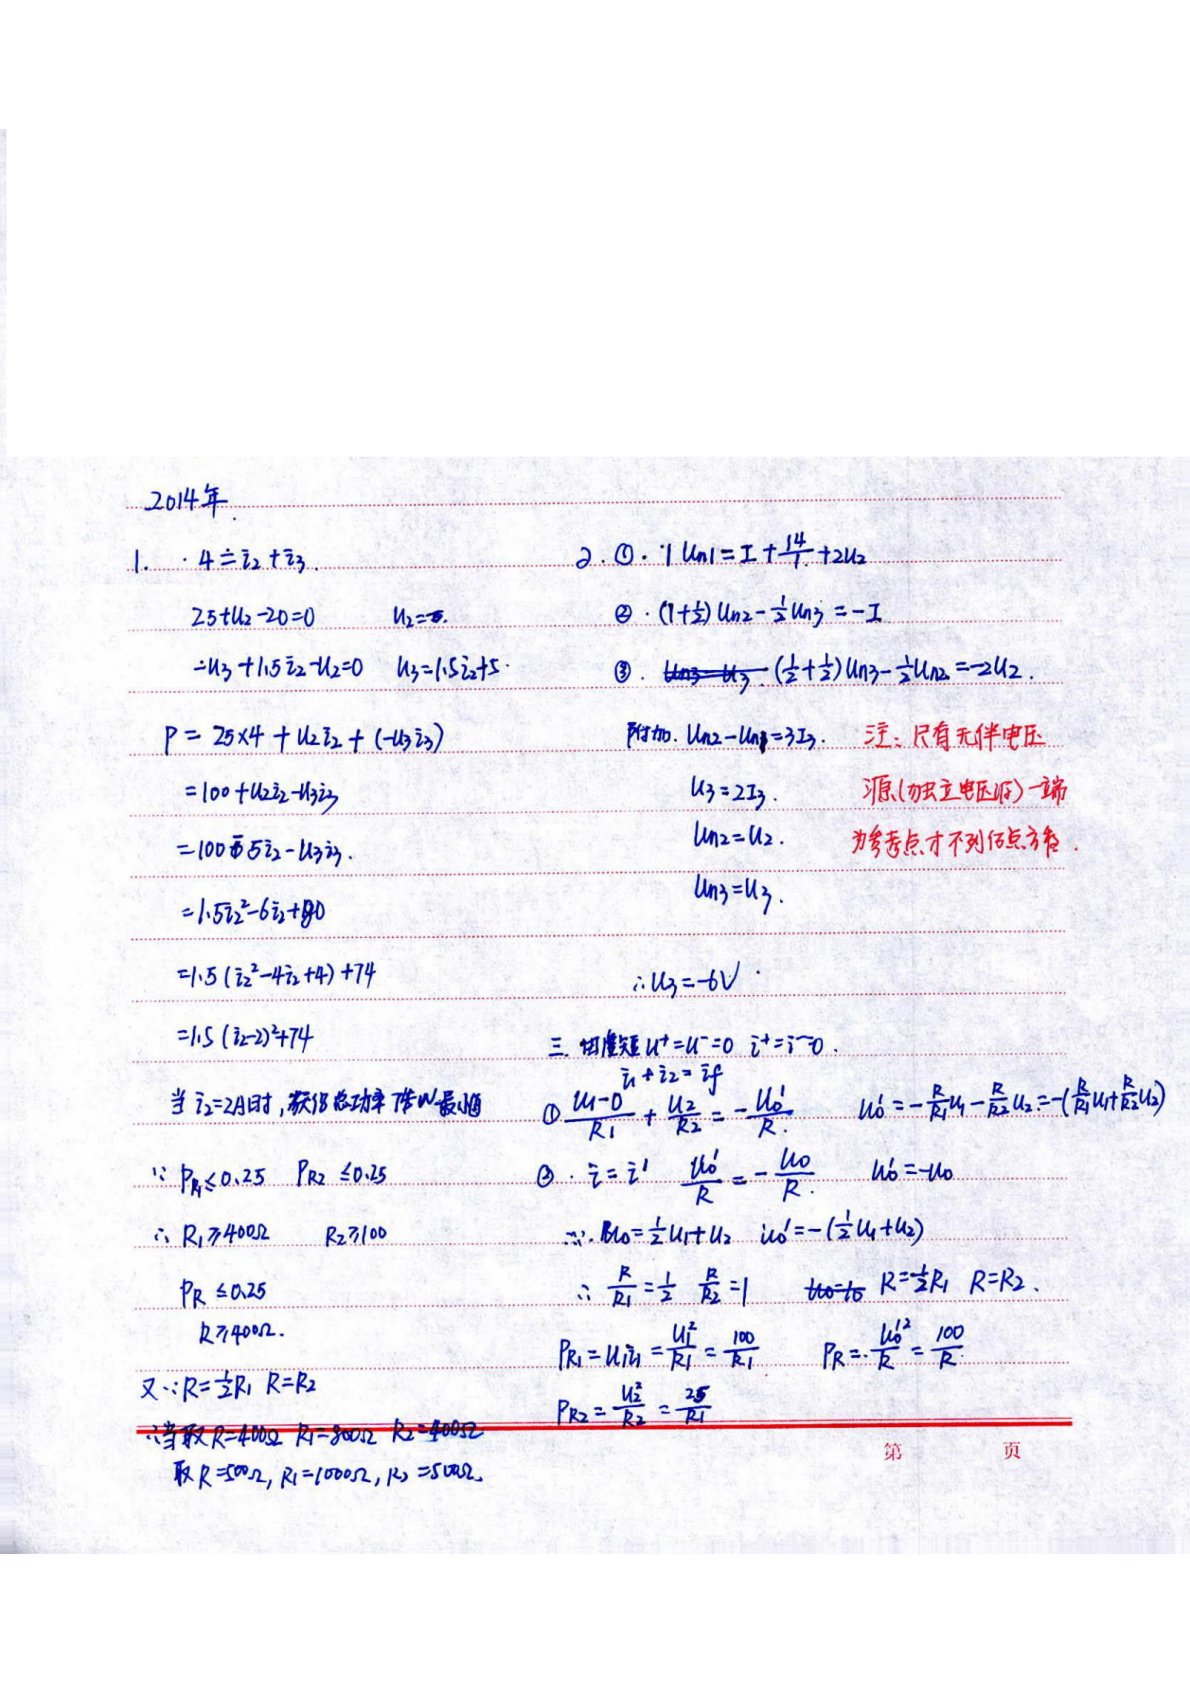 2014年
1. 4=i₂+i₃.
25+U₂-20=0 U₂=-5.
-U₃+1.5i₂-U₂=0 U₃=1.5i₂+5.
P= 25×4+U₂i₂+(-U₃i₃)
=100+U₂i₂-U₃i₃
=100-5i₂-U₃i₃.
=1.5i₂²-6i₂+80
=1.5(i₂²-4i₂+4)+74
=1.5(i₂-2)²+74
当i₂=2A时,获得总功率74W最小值
∵ PR₁≤0.25 PR₂≤0.25
∴ R₁≥400Ω R₂≥100
PR≤0.25
R≥400Ω.
又∵R=½R₁ R=R₂
∴当取R=400Ω R₁=800Ω R₂=400Ω
取R=500Ω, R₁=1000Ω, R₂=500Ω.
2. ①. 1Un1=I+14/1+2U₂
②. (1+½)Un2-½Un3=-I
③. (½+½)Un3-½Un2=-2U₂.
附加. Un2-Un1=3I₃.
U₃=2I₃.
Un2=U₂.
Un3=U₃.
注:只有无伴电压
源(为独立电压源)一端
为参考点才不列结点方程.
∴U₃=-6V
三. U⁺=U⁻=0 i⁺=i⁻=0.
i₁+i₂=if
① (U₁-0)/R₁+U₂/R₂=-U₀'/R. U₀'=-R/R₁U₁-R/R₂U₂=-(R/R₁U₁+R/R₂U₂)
②. i=i' U₀'/R=-U₀/R. U₀'=-U₀
∵. U₀=½U₁+U₂ U₀'=-(½U₁+U₂)
∴ R/R₁=½ R/R₂=1 R=½R₁ R=R₂.
PR₁=U₁i₁=U₁²/R₁=100/R₁ PR=U₀'²/R=100/R.
PR₂=U₂²/R₂=25/R₁
第 页